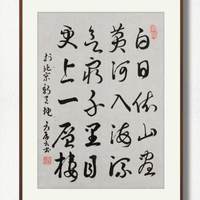 白日依山盡
黄河入海流
欲窮千里目
更上一層樓
於北京